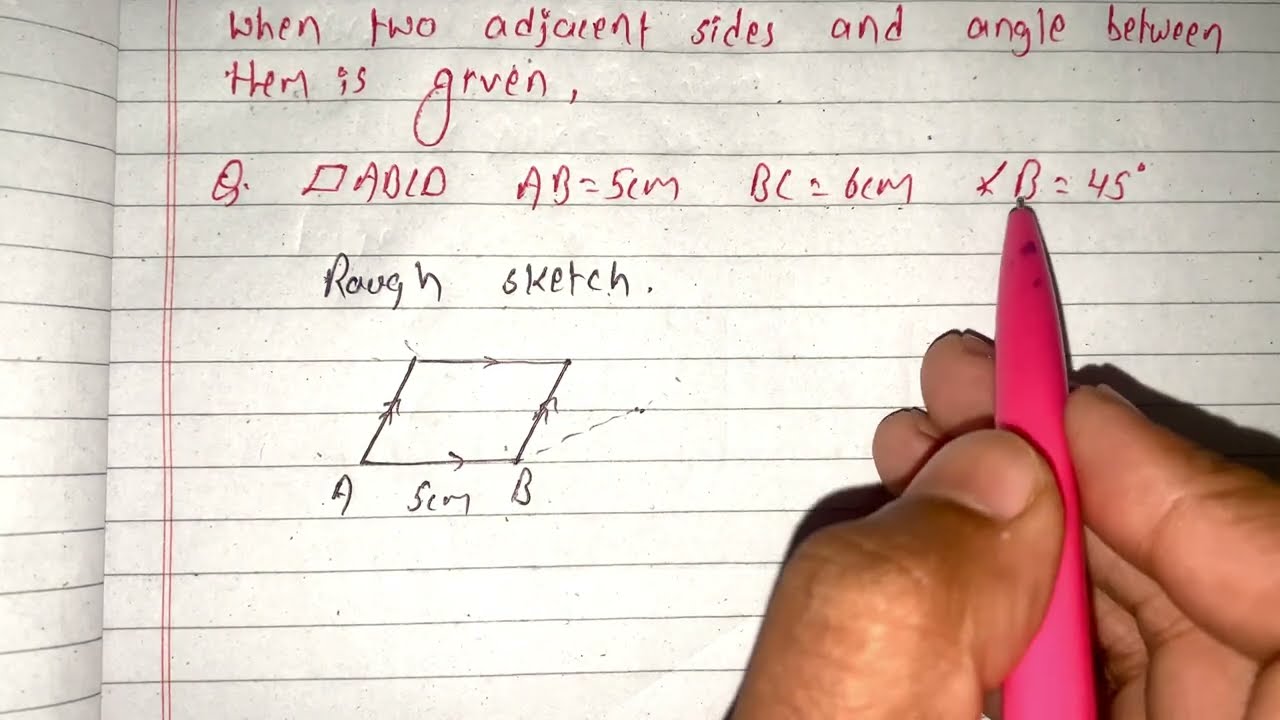 When two adjacent sides and angle between
them is given,
Q. ▱ABCD AB=5cm BC=6cm ∠B=45°
Rough sketch.
A 5cm B